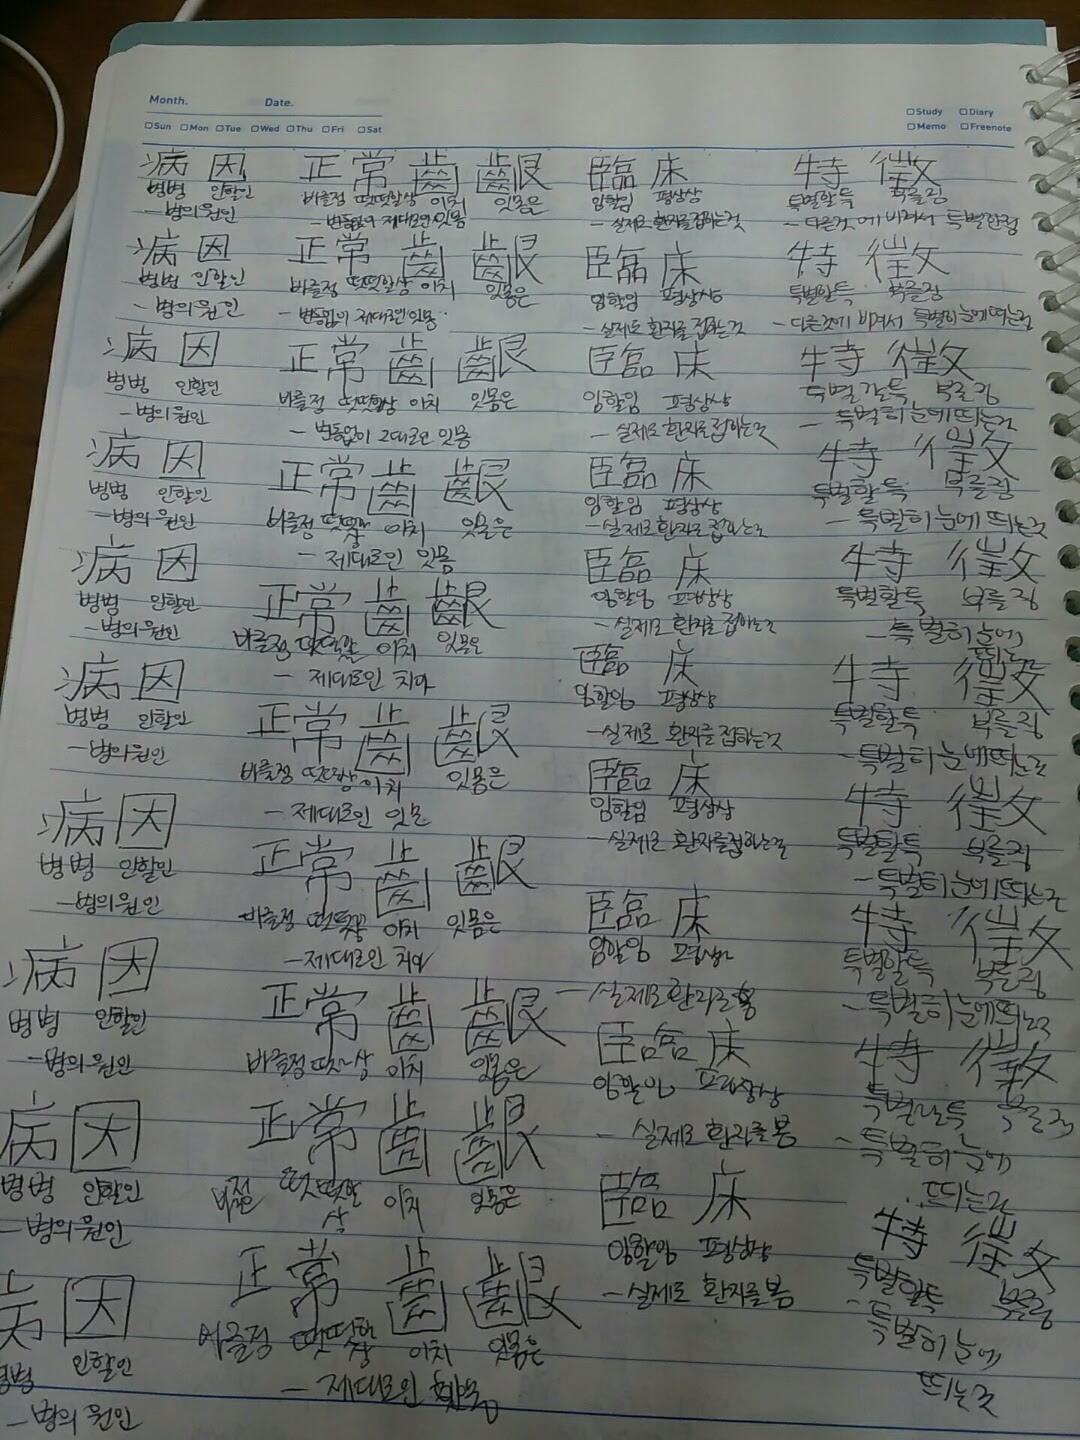 Month. Date.
□Sun □Mon □Tue □Wed □Thu □Fri □Sat
□Study □Diary
□Memo □Freenote
病 因 正 常 齒 齦 臨 床 特 徵
병병 인할인 바를정 떳떳할상 이치 잇몸은 임할임 평상상 특별할특 부를징
- 병의 원인 - 변동없이 제대로인 잇몸 - 실제로 환자를 접하는것 - 다른것에 비겨서 특별한점
病 因 正 常 齒 齦 臨 床 特 徵
병병 인할인 바를정 떳떳할상 이치 잇몸은 임할임 평상상 특별할특 부를징
- 병의 원인 - 변동없이 제대로인 잇몸 - 실제로 환자를 접하는것 - 다른것에 비겨서 특별히 눈에 띄는것
病 因 正 常 齒 齦 臨 床 特 徵
병병 인할인 바를정 떳떳할상 이치 잇몸은 임할임 평상상 특별할특 부를징
- 병의 원인 - 변동없이 그대로인 잇몸 - 실제로 환자를 접하는것 - 특별히 눈에 띄는것
病 因 正 常 齒 齦 臨 床 特 徵
병병 인할인 바를정 떳떳할상 이치 잇몸은 임할임 평상상 특별할특 부를징
- 병의 원인 - 제대로인 잇몸 - 실제로 환자를 접하는것 - 특별히 눈에 띄는것
病 因 正 常 齒 齦 臨 床 特 徵
병병 인할인 바를정 떳떳할 이치 잇몸은 임할임 평상상 특별할특 부를징
- 병의 원인 - 제대로인 치아 - 실제로 환자를 접하는것 - 특별히 눈에 띄는것
病 因 正 常 齒 齦 臨 床 特 徵
병병 인할인 바를정 떳떳상 이치 잇몸은 임할임 평상상 특별할특 부를징
- 병의 원인 - 제대로인 잇몸 - 실제로 환자를 접하는것 - 특별히 눈에 띄는것
病 因 正 常 齒 齦 臨 床 特 徵
병병 인할인 바를정 이치 잇몸은 임할임 평상상 특별할특 부를징
- 병의 원인 - 제대로인 치아 - 실제로 환자를 접하는것 - 특별히 눈에 띄는것
病 因 正 常 齒 齦 臨 床 特 徵
병병 인할인 바를정 떳~상 이치 잇몸은 임할임 평상 특별할특 부를징
- 병의 원인 - 실제로 환자를 - 특별히 눈에 띄는것
病 因 正 常 齒 齦 臨 床 特 徵
병병 인할인 떳떳할상 이치 잇몸은 임할임 평상상 특별할특 부를징
- 병의 원인 - 실제로 환자를 봄 - 특별히 눈에 띄는것
病 因 正 常 齒 齦 臨 床 特 徵
병병 인할인 바를정 떳떳할상 이치 잇몸은 임할임 평상상 특별할특 부를징
- 병의 원인 - 제대로인 - 실제로 환자를 봄 - 특별히 눈에 띄는것